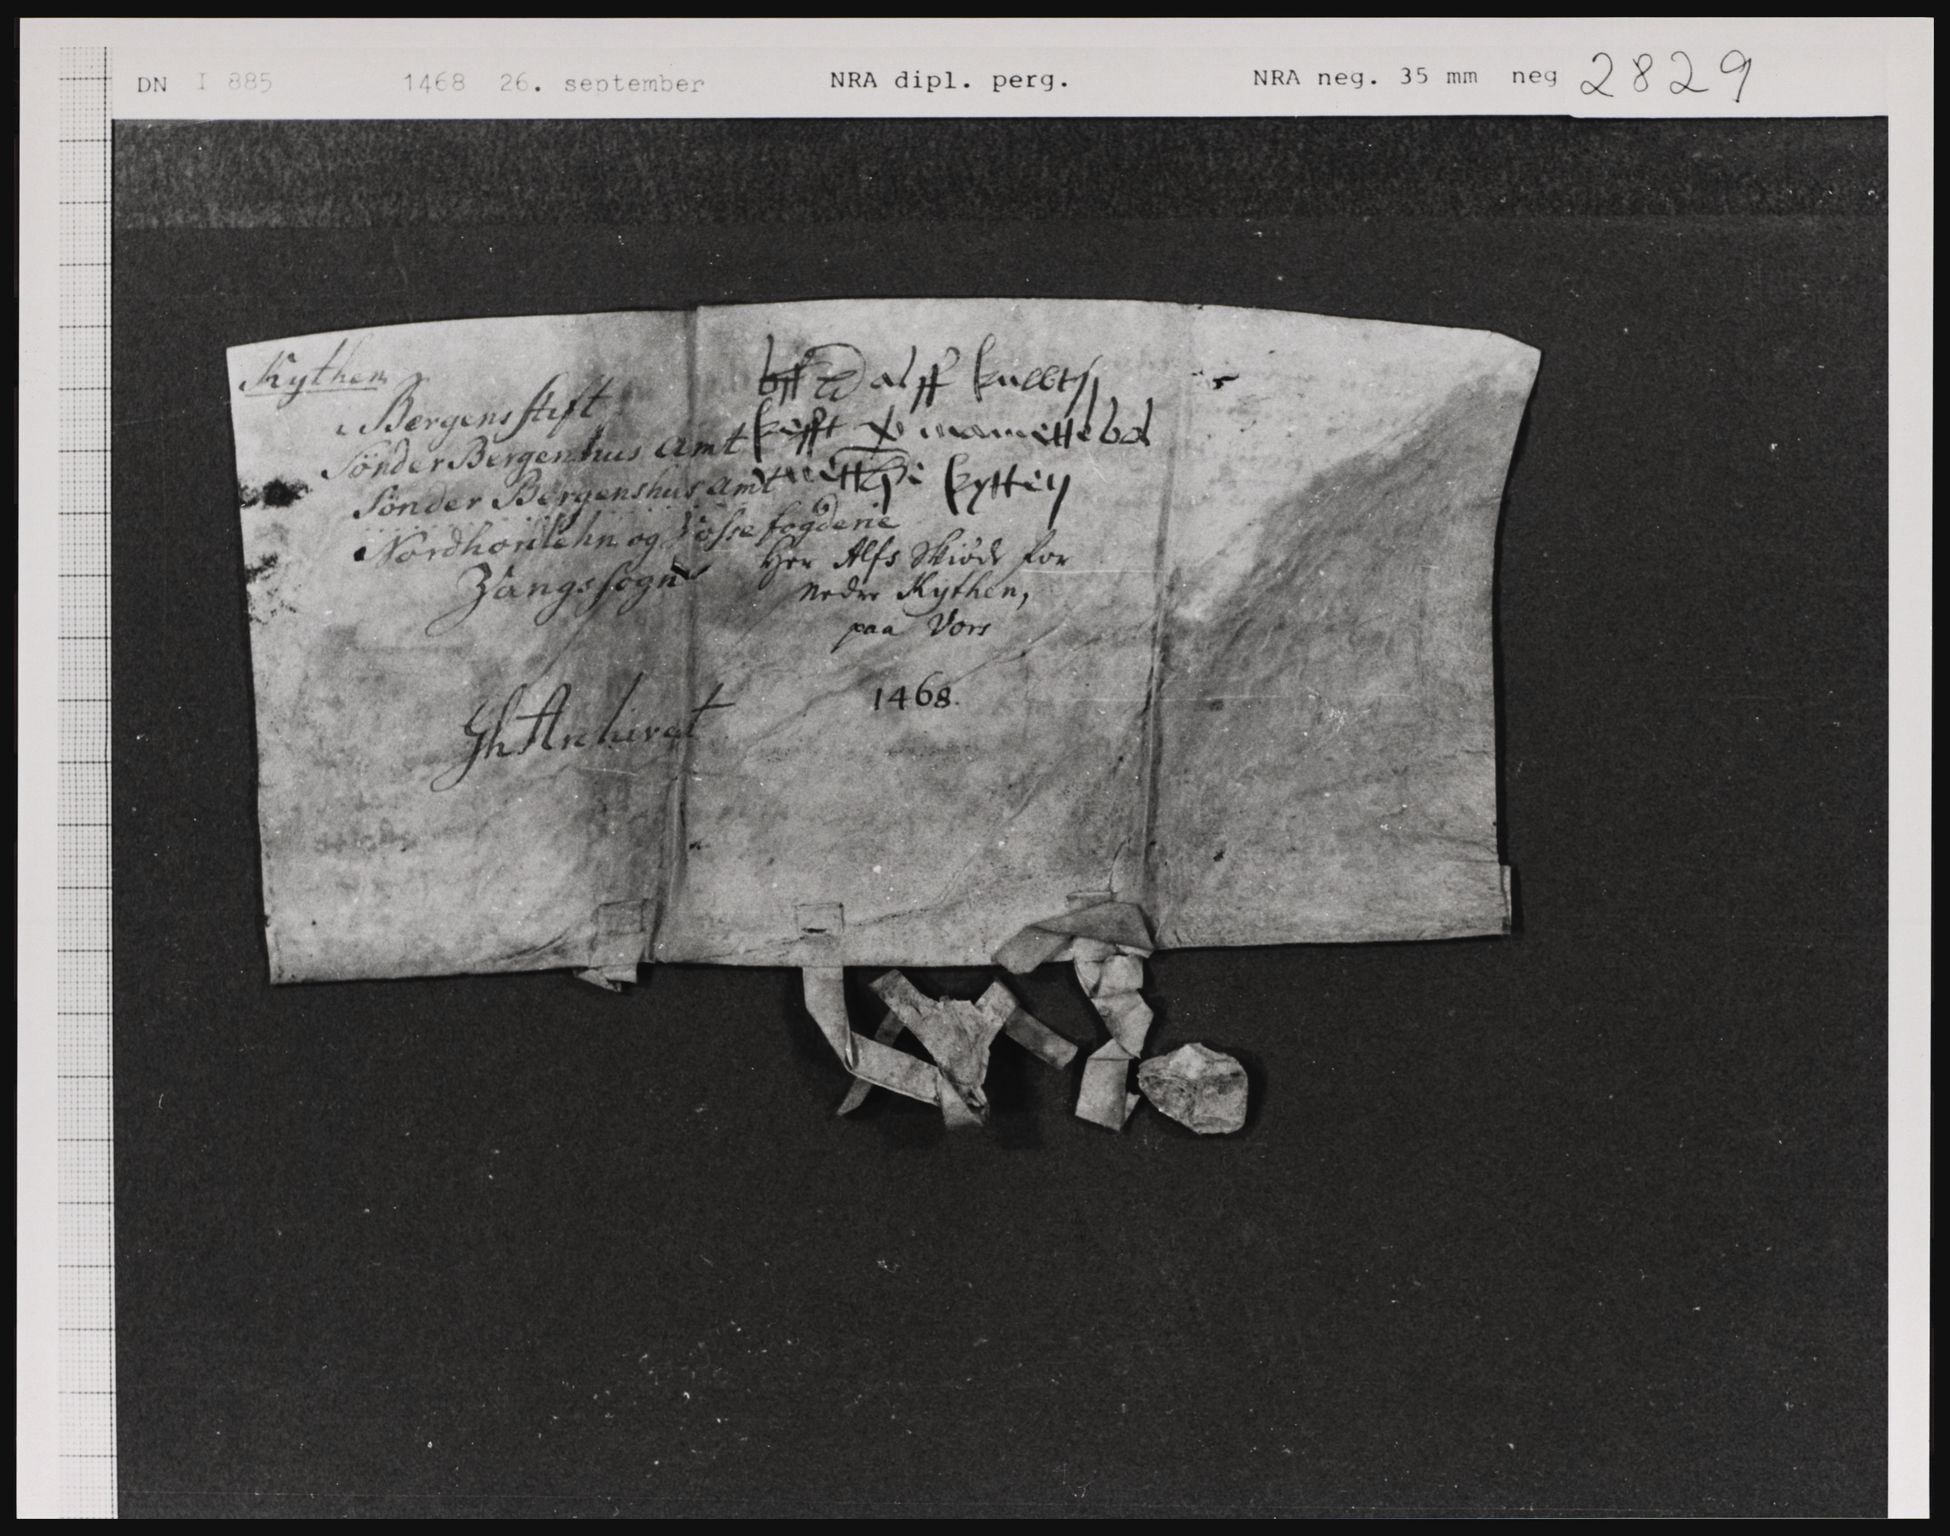 DN I 885 1468 26. september NRA dipl. perg. NRA neg. 35 mm neg 2829
Kythem
i Bergens stift
Sönder Bergenhus amt
Sönder Bergenshus amt
Nordhorlehn og Vosse fogderie
Vangs sogn
Gh Archivet
alff
kyttein
Her Alfs Skiöde for
Nedre Kythen,
paa Vors
1468.